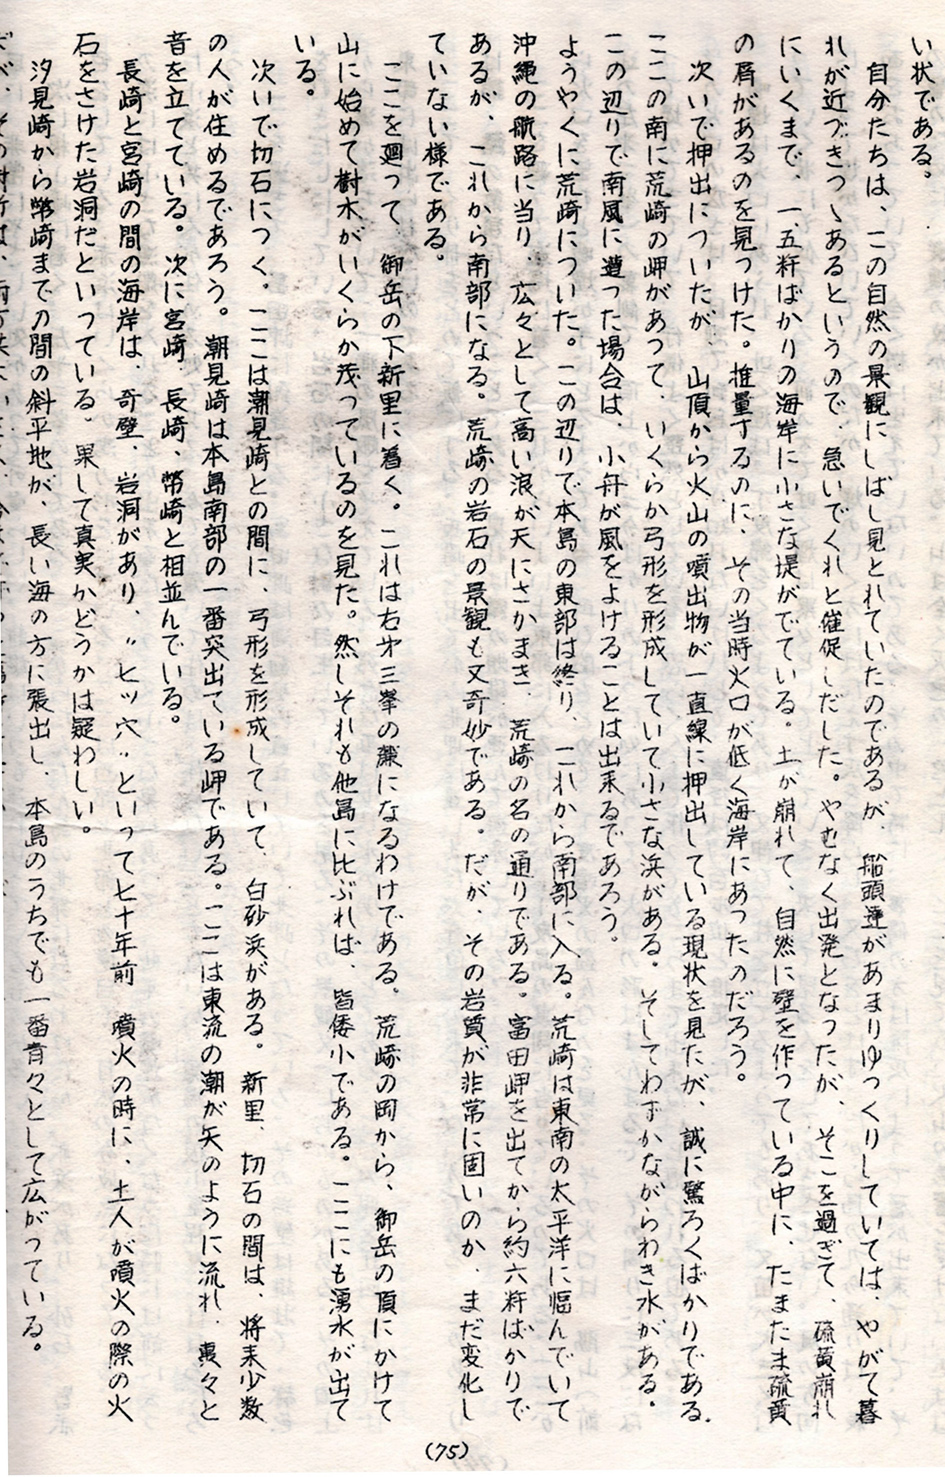 い状である。
自分たちは、この自然の景観にしばし見とれていたのであるが、船頭達があまりゆっくりしていては、やがて暮
れが近づきつゝあるというので、急いでくれと催促しだした。やむなく出発となったが、そこを過ぎて、硫黄崩れ
にいくまで、一、五粁ばかりの海岸に小さな堤がでている。土が崩れて、自然に壁を作っている中に、たまたま硫黄
の屑があるのを見つけた。推量するのに、その当時火口が低く海岸にあったのだろう。
次いで押出についたが、山頂から火山の噴出物が一直線に押出している現状を見たが、誠に驚ろくばかりである。
ここの南に荒崎の岬があつて、いくらか弓形を形成していて小さな浜がある。そしてわずかながらわき水がある。
この辺りで南風に遭った場合は、小舟が風をよけることは出来るであろう。
ようやくに荒崎についた。この辺りで本島の東部は終り、これから南部に入る。荒崎は東南の太平洋に臨んでいて
沖縄の航路に当り、広々として高い浪が天にさかまき、荒崎の名の通りである。富田岬を出てから約六粁ばかりで
あるが、これから南部になる。荒崎の岩石の景観も又奇妙である。だが、その岩質が非常に固いのか、まだ変化し
ていない様である。
ここを廻って、御岳の下新里に着く。これは右才三峯の麓になるわけである。荒崎の岡から、御岳の頂にかけて
山に始めて樹木がいくらか茂っているのを見た。然しそれも他島に比ぶれば、皆倭小である。ここにも湧水が出て
いる。
次いで切石につく。ここは潮見崎との間に、弓形を形成していて、白砂浜がある。新里、切石の間は、将来少数
の人が住めるであろう。潮見崎は本島南部の一番突出ている岬である。ここは東流の潮が矢のように流れ、轟々と
音を立てている。次に宮崎、長崎、幣崎と相並んでいる。
長崎と宮崎の間の海岸は、奇壁、岩洞があり、〃七ッ穴〃といって七十年前 噴火の時に、土人が噴火の際の火
石をさけた岩洞だといっている。果して真実かどうかは疑わしい。
汐見崎から幣崎までの間の斜平地が、長い海の方に張出し、本島のうちでも一番青々として広がっている。
(75)